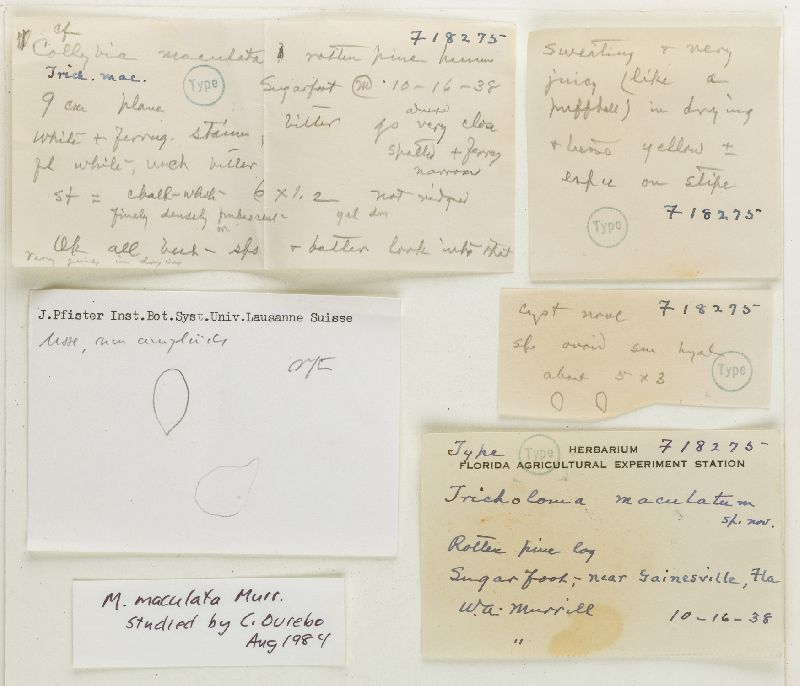 cf
Collybia maculata rotten pine humus
F18275
Trich. mac.
Type
Sugarfoot 10-16-38
9 cm plane
white + ferrug. stains, bitter
go very close
spotted + ferrug
narrow
fl white, much bitter
st = chalk-white 6 x 1.2 not ridged
finely densely pubescent
Ok all but sps + better look into that
very juicy in drying
sweating + very
juicy (like a
puffball) in drying
yellow ±
esp on stipe
F18275
Type
J.Pfister Inst.Bot.Syst.Univ.Lausanne Suisse
non amyloids
cyst none F18275
sps ovoid sm hyal
about 5 x 3
Type
Type
Type
HERBARIUM F18275
FLORIDA AGRICULTURAL EXPERIMENT STATION
Tricholoma maculatum
sp. nov.
Rotten pine log
Sugarfoot, near Gainesville, Fla
W.A. Murrill 10-16-38
"
M. maculata Murr.
studied by C. Ovrebo
Aug 1984